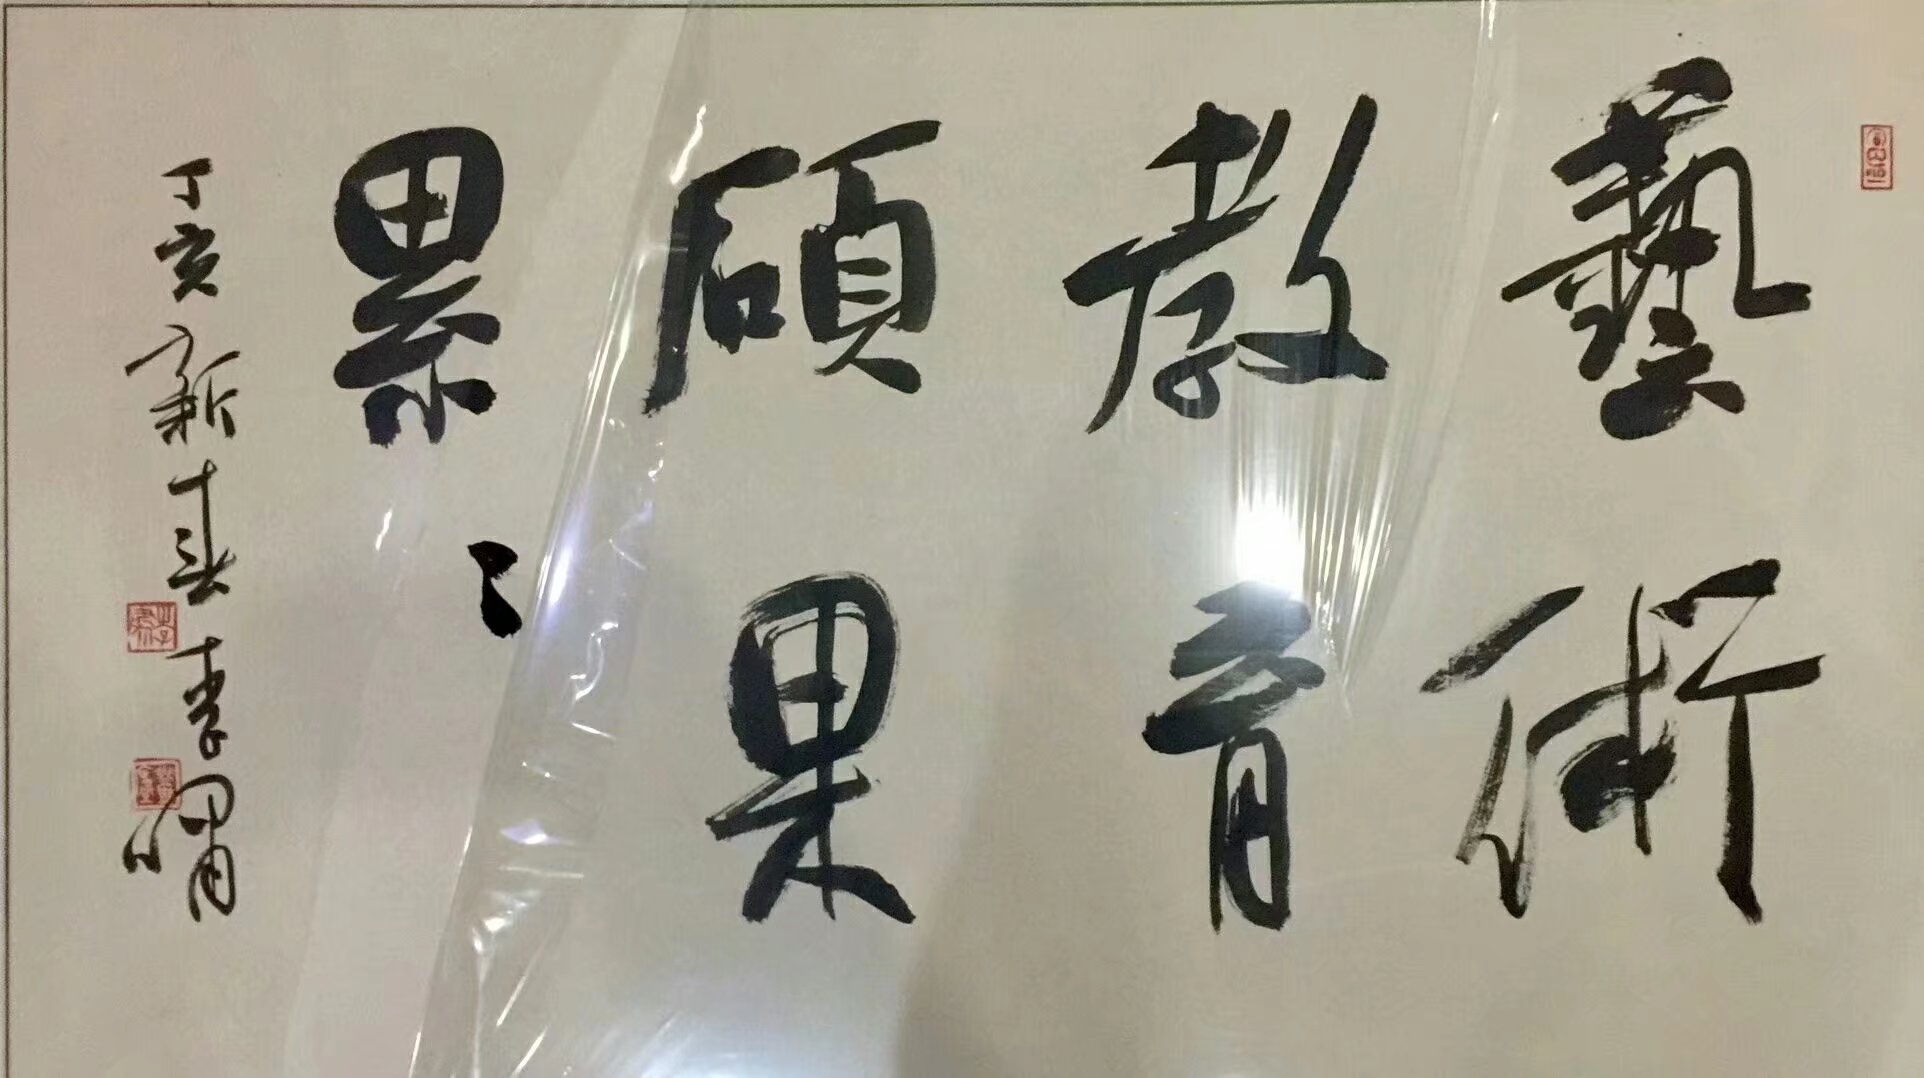 藝術
教育
碩果
累〻
丁亥新春李嘯